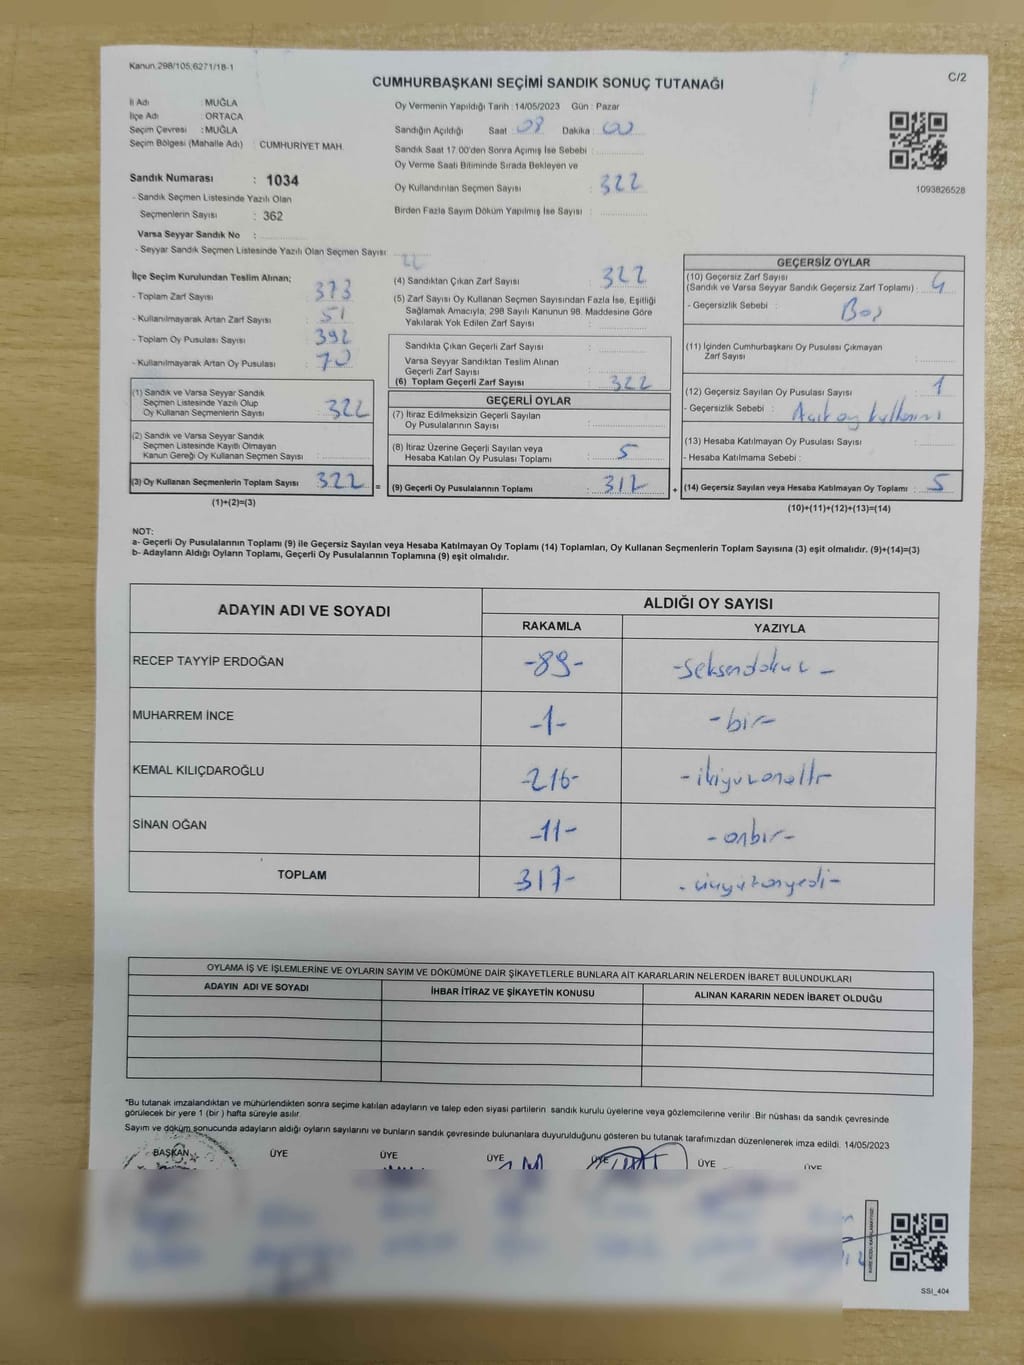 Kanun,298/105,6271/18-1
CUMHURBAŞKANI SEÇİMİ SANDIK SONUÇ TUTANAĞI
C/2
İl Adı : MUĞLA
İlçe Adı : ORTACA
Seçim Çevresi : MUĞLA
Seçim Bölgesi (Mahalle Adı) : CUMHURİYET MAH.
Sandık Numarası : 1034
- Sandık Seçmen Listesinde Yazılı Olan
Seçmenlerin Sayısı : 362
Varsa Seyyar Sandık No :
- Seyyar Sandık Seçmen Listesinde Yazılı Olan Seçmen Sayısı :
Oy Vermenin Yapıldığı Tarih : 14/05/2023 Gün : Pazar
Sandığın Açıldığı Saat : 08 Dakika : 00
Sandık Saat 17.00'den Sonra Açımış İse Sebebi :
Oy Verme Saati Bitiminde Sırada Bekleyen ve
Oy Kullandırılan Seçmen Sayısı : 322
Birden Fazla Sayım Döküm Yapılmış İse Sayısı :
1093826528
İlçe Seçim Kurulundan Teslim Alınan;
- Toplam Zarf Sayısı : 373
- Kullanılmayarak Artan Zarf Sayısı : 51
- Toplam Oy Pusulası Sayısı : 392
- Kullanılmayarak Artan Oy Pusulası : 70
(1) Sandık ve Varsa Seyyar Sandık
Seçmen Listesinde Yazılı Olup
Oy Kullanan Seçmenlerin Sayısı : 322
(2) Sandık ve Varsa Seyyar Sandık
Seçmen Listesinde Kayıtlı Olmayan
Kanun Gereği Oy Kullanan Seçmen Sayısı :
(3) Oy Kullanan Seçmenlerin Toplam Sayısı : 322
(1)+(2)=(3)
(4) Sandıktan Çıkan Zarf Sayısı : 322
(5) Zarf Sayısı Oy Kullanan Seçmen Sayısından Fazla İse, Eşitliği
Sağlamak Amacıyla; 298 Sayılı Kanunun 98. Maddesine Göre
Yakılarak Yok Edilen Zarf Sayısı :
Sandıkta Çıkan Geçerli Zarf Sayısı :
Varsa Seyyar Sandıktan Teslim Alınan
Geçerli Zarf Sayısı :
(6) Toplam Geçerli Zarf Sayısı : 322
GEÇERLİ OYLAR
(7) İtiraz Edilmeksizin Geçerli Sayılan
Oy Pusulalarının Sayısı :
(8) İtiraz Üzerine Geçerli Sayılan veya
Hesaba Katılan Oy Pusulası Toplamı : 5
= (9) Geçerli Oy Pusulalarının Toplamı :
GEÇERSİZ OYLAR
(10) Geçersiz Zarf Sayısı
(Sandık ve Varsa Seyyar Sandık Geçersiz Zarf Toplamı) : 4
- Geçersizlik Sebebi : Boş
(11) İçinden Cumhurbaşkanı Oy Pusulası Çıkmayan
Zarf Sayısı :
(12) Geçersiz Sayılan Oy Pusulası Sayısı : 1
- Geçersizlik Sebebi : Açık oy kullanımı
(13) Hesaba Katılmayan Oy Pusulası Sayısı :
- Hesaba Katılmama Sebebi :
+ (14) Geçersiz Sayılan veya Hesaba Katılmayan Oy Toplamı : 5
(10)+(11)+(12)+(13)=(14)
NOT:
a- Geçerli Oy Pusulalarının Toplamı (9) ile Geçersiz Sayılan veya Hesaba Katılmayan Oy Toplamı (14) Toplamları, Oy Kullanan Seçmenlerin Toplam Sayısına (3) eşit olmalıdır. (9)+(14)=(3)
b- Adayların Aldığı Oyların Toplamı, Geçerli Oy Pusulalarının Toplamına (9) eşit olmalıdır.
ADAYIN ADI VE SOYADI ALDIĞI OY SAYISI
RAKAMLA YAZIYLA
RECEP TAYYİP ERDOĞAN -89- -seksendokuz-
MUHARREM İNCE -1- -bir-
KEMAL KILIÇDAROĞLU -216- -ikiyüzonaltı-
SİNAN OĞAN -11- -onbir-
TOPLAM 317- -üçyüzonyedi-
OYLAMA İŞ VE İŞLEMLERİNE VE OYLARIN SAYIM VE DÖKÜMÜNE DAİR ŞİKAYETLERLE BUNLARA AİT KARARLARIN NELERDEN İBARET BULUNDUKLARI
ADAYIN ADI VE SOYADI İHBAR İTİRAZ VE ŞİKAYETİN KONUSU ALINAN KARARIN NEDEN İBARET OLDUĞU
*Bu tutanak imzalandıktan ve mühürlendikten sonra seçime katılan adayların ve talep eden siyasi partilerin sandık kurulu üyelerine veya gözlemcilerine verilir .Bir nüshası da sandık çevresinde
görülecek bir yere 1 (bir ) hafta süreyle asılır.
Sayım ve döküm sonucunda adayların aldığı oyların sayılarını ve bunların sandık çevresinde bulunanlara duyurulduğunu gösteren bu tutanak tarafımızdan düzenlenerek imza edildi. 14/05/2023
BAŞKAN ÜYE ÜYE ÜYE ÜYE ÜYE ÜYE
SSI_404